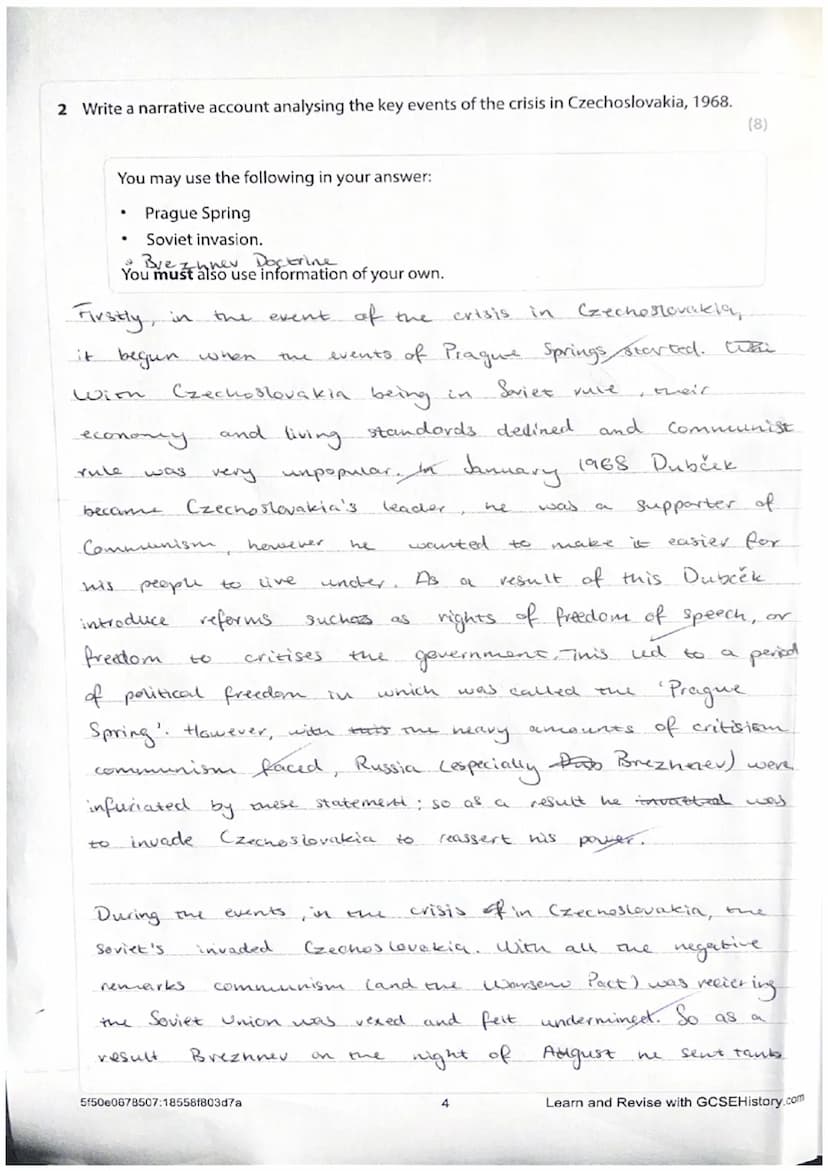 2 Write a narrative account analysing the key events of the crisis in Czechoslovakia, 1968.
(8)
You may use the following in your answer:
• Prague Spring
• Soviet invasion.
• Brezhnev Doctrine
You must also use information of your own.
Firstly, in the event of the crisis in Czechoslovakia,
it begun when the events of Prague Springs started.
With Czechoslovakia being in Soviet rule, their
economy and living standords declined and Communist
rule was very unpopular. In January 1968 Dubček
became Czechoslovakia's leader, he was a supporter of
Communism, however he wanted to make it easier for
his people to live under. As a result of this Dubček
introduce reforms suchas as rights of freedom of speech, or
freedom to critises the government. This led to a period
of political freedom in which was called the 'Prague
Spring'. However, with this the heavy amounts of critisism
communism faced, Russia (especially Brezhnev) were
infuriated by these statement; so as a result he invaded was
to invade Czechoslovakia to reassert his power.
During the events, in the crisis of in Czechoslovakia, the
Soviet's invaded Czechoslovakia. With all the negative
remarks communism (and the Warsaw Pact) was recieving
the Soviet Union was vexed and felt undermined. So as a
result Brezhnev on the night of August he sent tanks
5f50e0678507:18558f803d7a
4
Learn and Revise with GCSEHistory.com